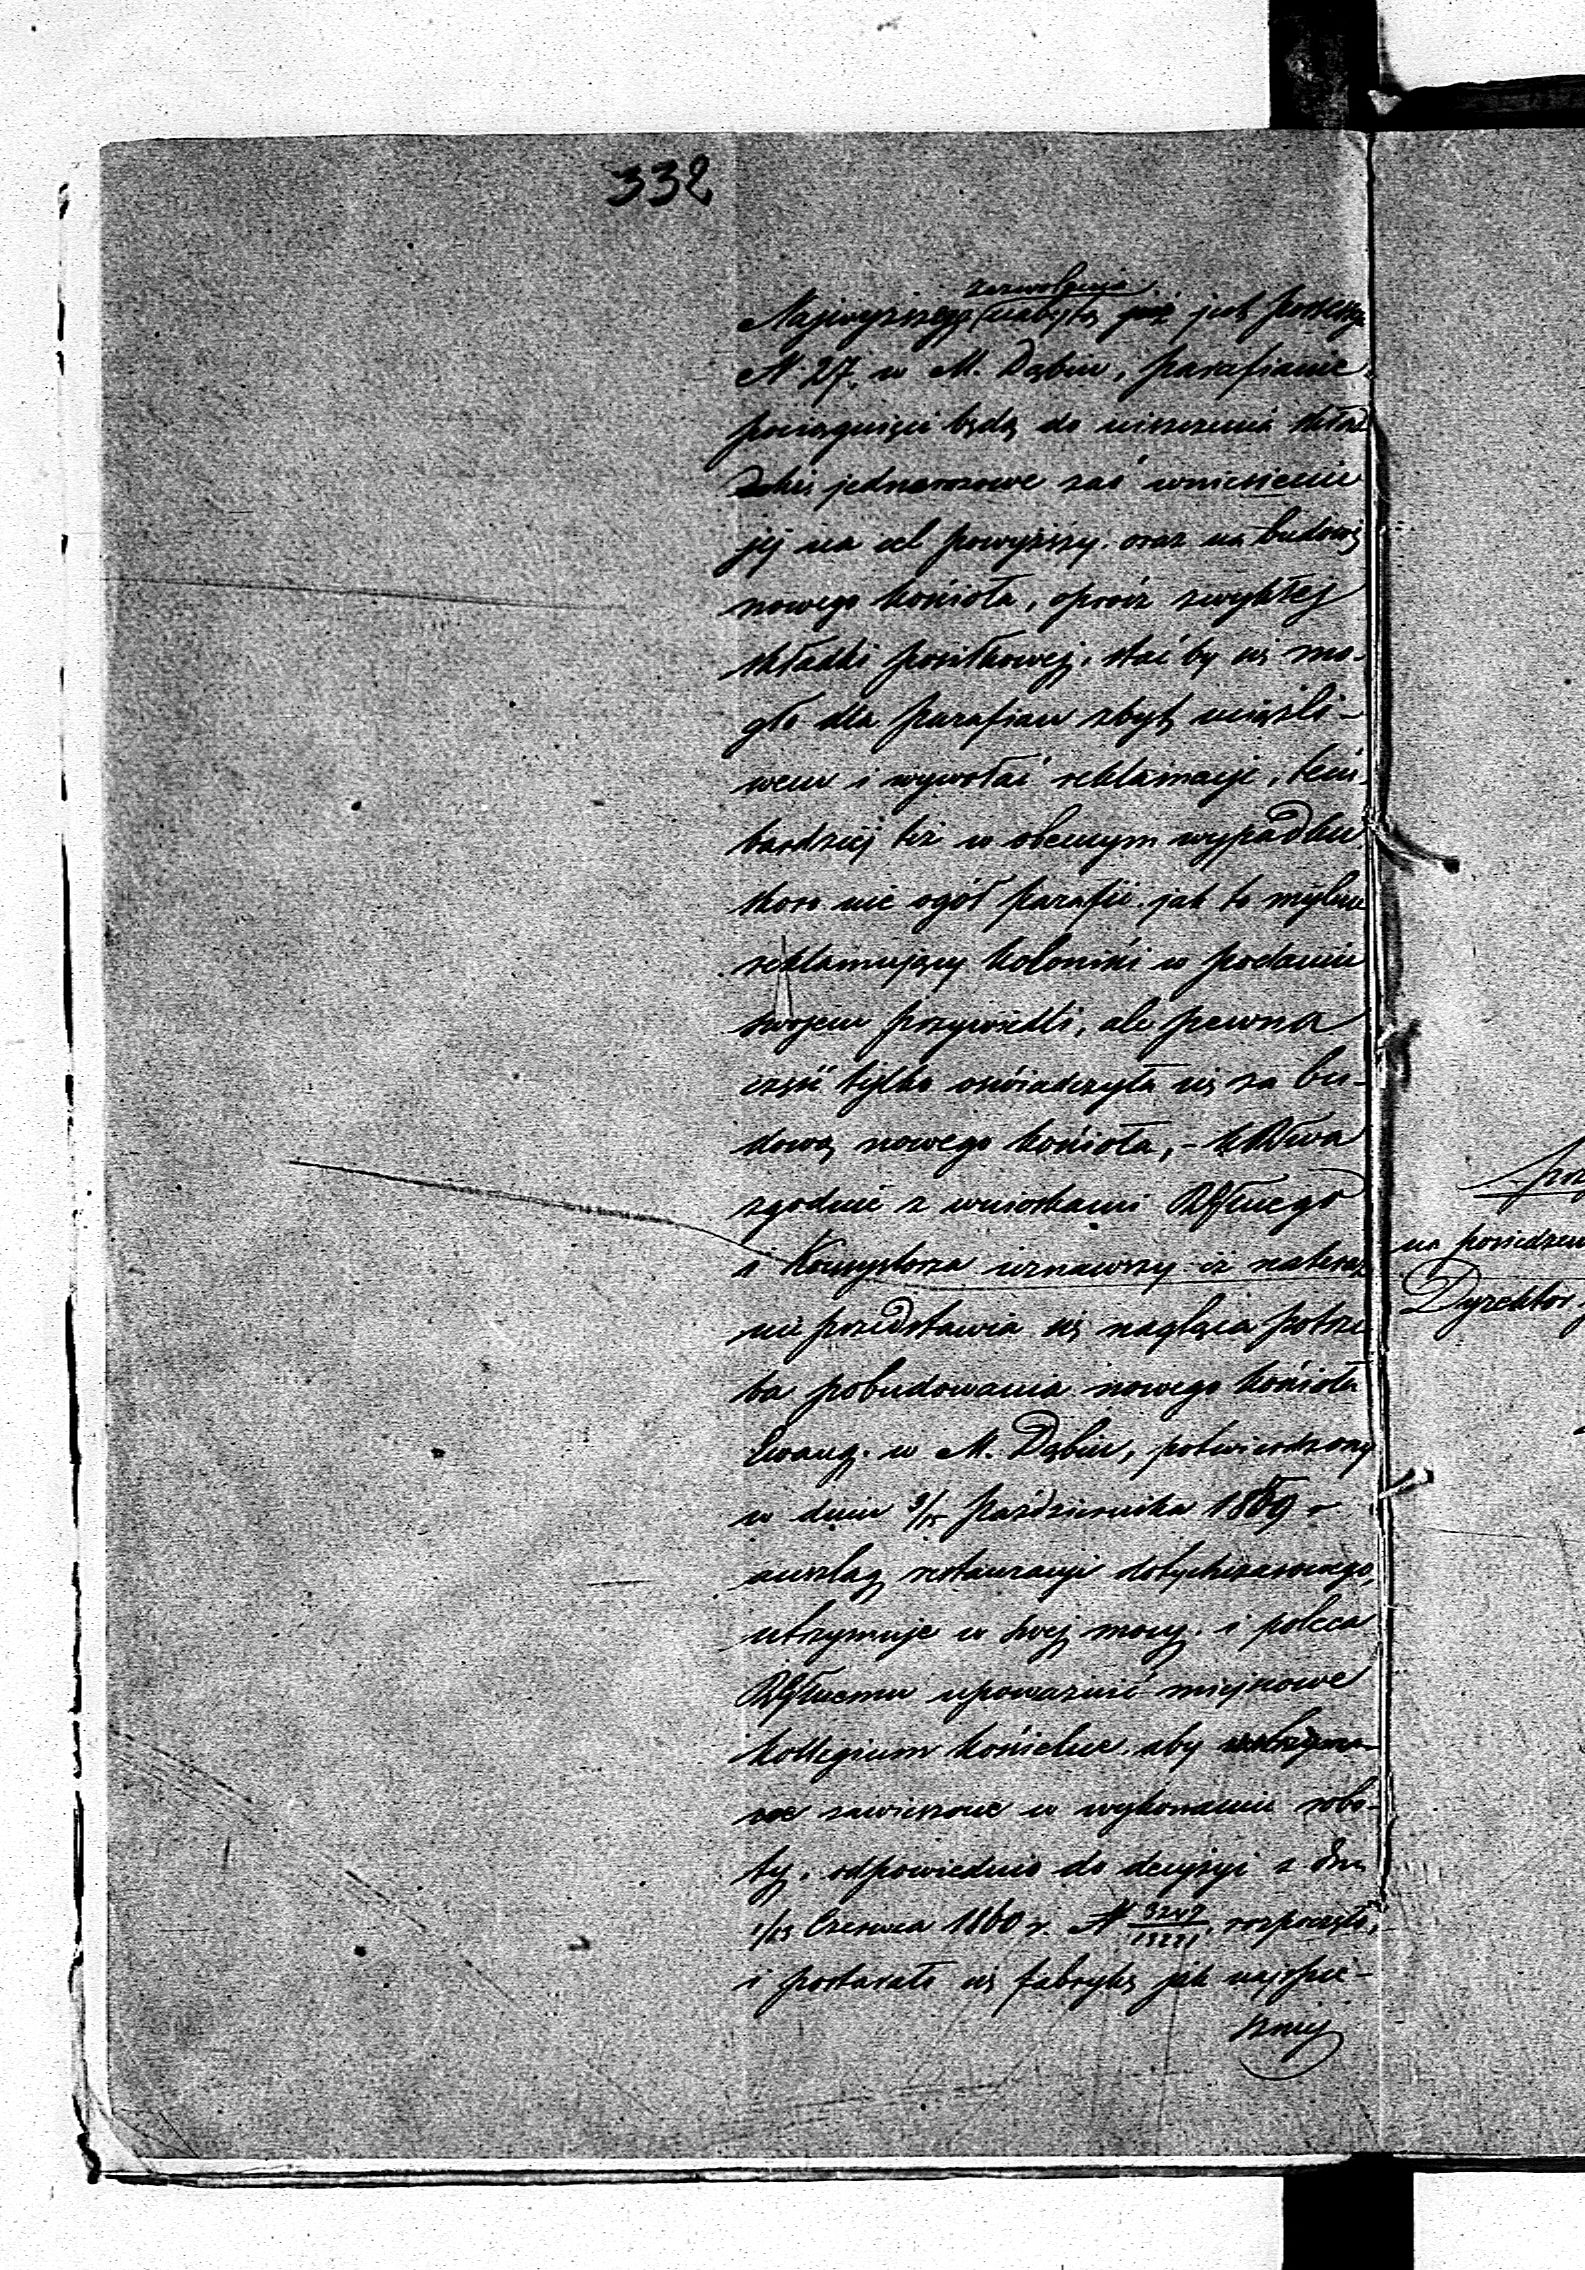 332
zezwolenia
Najwyższego nabytą już jest possessya
N. 27. w M. Dąbiu, parafianie
pociągnięci będą do uiszczenia skład
jednorazowe zaś wniesienie
jej na cel powyższy. oraz na budowę
nowego kościoła, oprócz zwykłej
składki posiłkowej, stać by się mo-
gło dla parafian zbyt uciążli-
wem i wywołać reklamacje, tem
bardziej też w obecnym wypadku
skoro nie ogół parafii. jak to mylnie
reklamujący koloniści w podaniu
swojem przywiedli, ale pewna
część tylko oświadczyła się za bu-
dową nowego kościoła, -
zgodnie z wnioskami
i Konsystorza uznawszy iż na teraz
nie przedstawia się nagląca potrze
ba pobudowania nowego kościoła
Ewang. w M. Dąbiu, potwierdzony
w dniu 3/15 Października 1869 r
anszlag restauracyi dotychczasowego,
utrzymuje w swej mocy. i poleca
upoważnić miejscowe
kollegium kościelne. aby
zawieszone w wykonaniu robo-
ty. odpowiednio do decyzyi z dnia
Czerwca 1860 r. N rozpoczęło,
i postarało się fabrykę jak najspie-
szniej
na posiedzeniu
Dyrektor